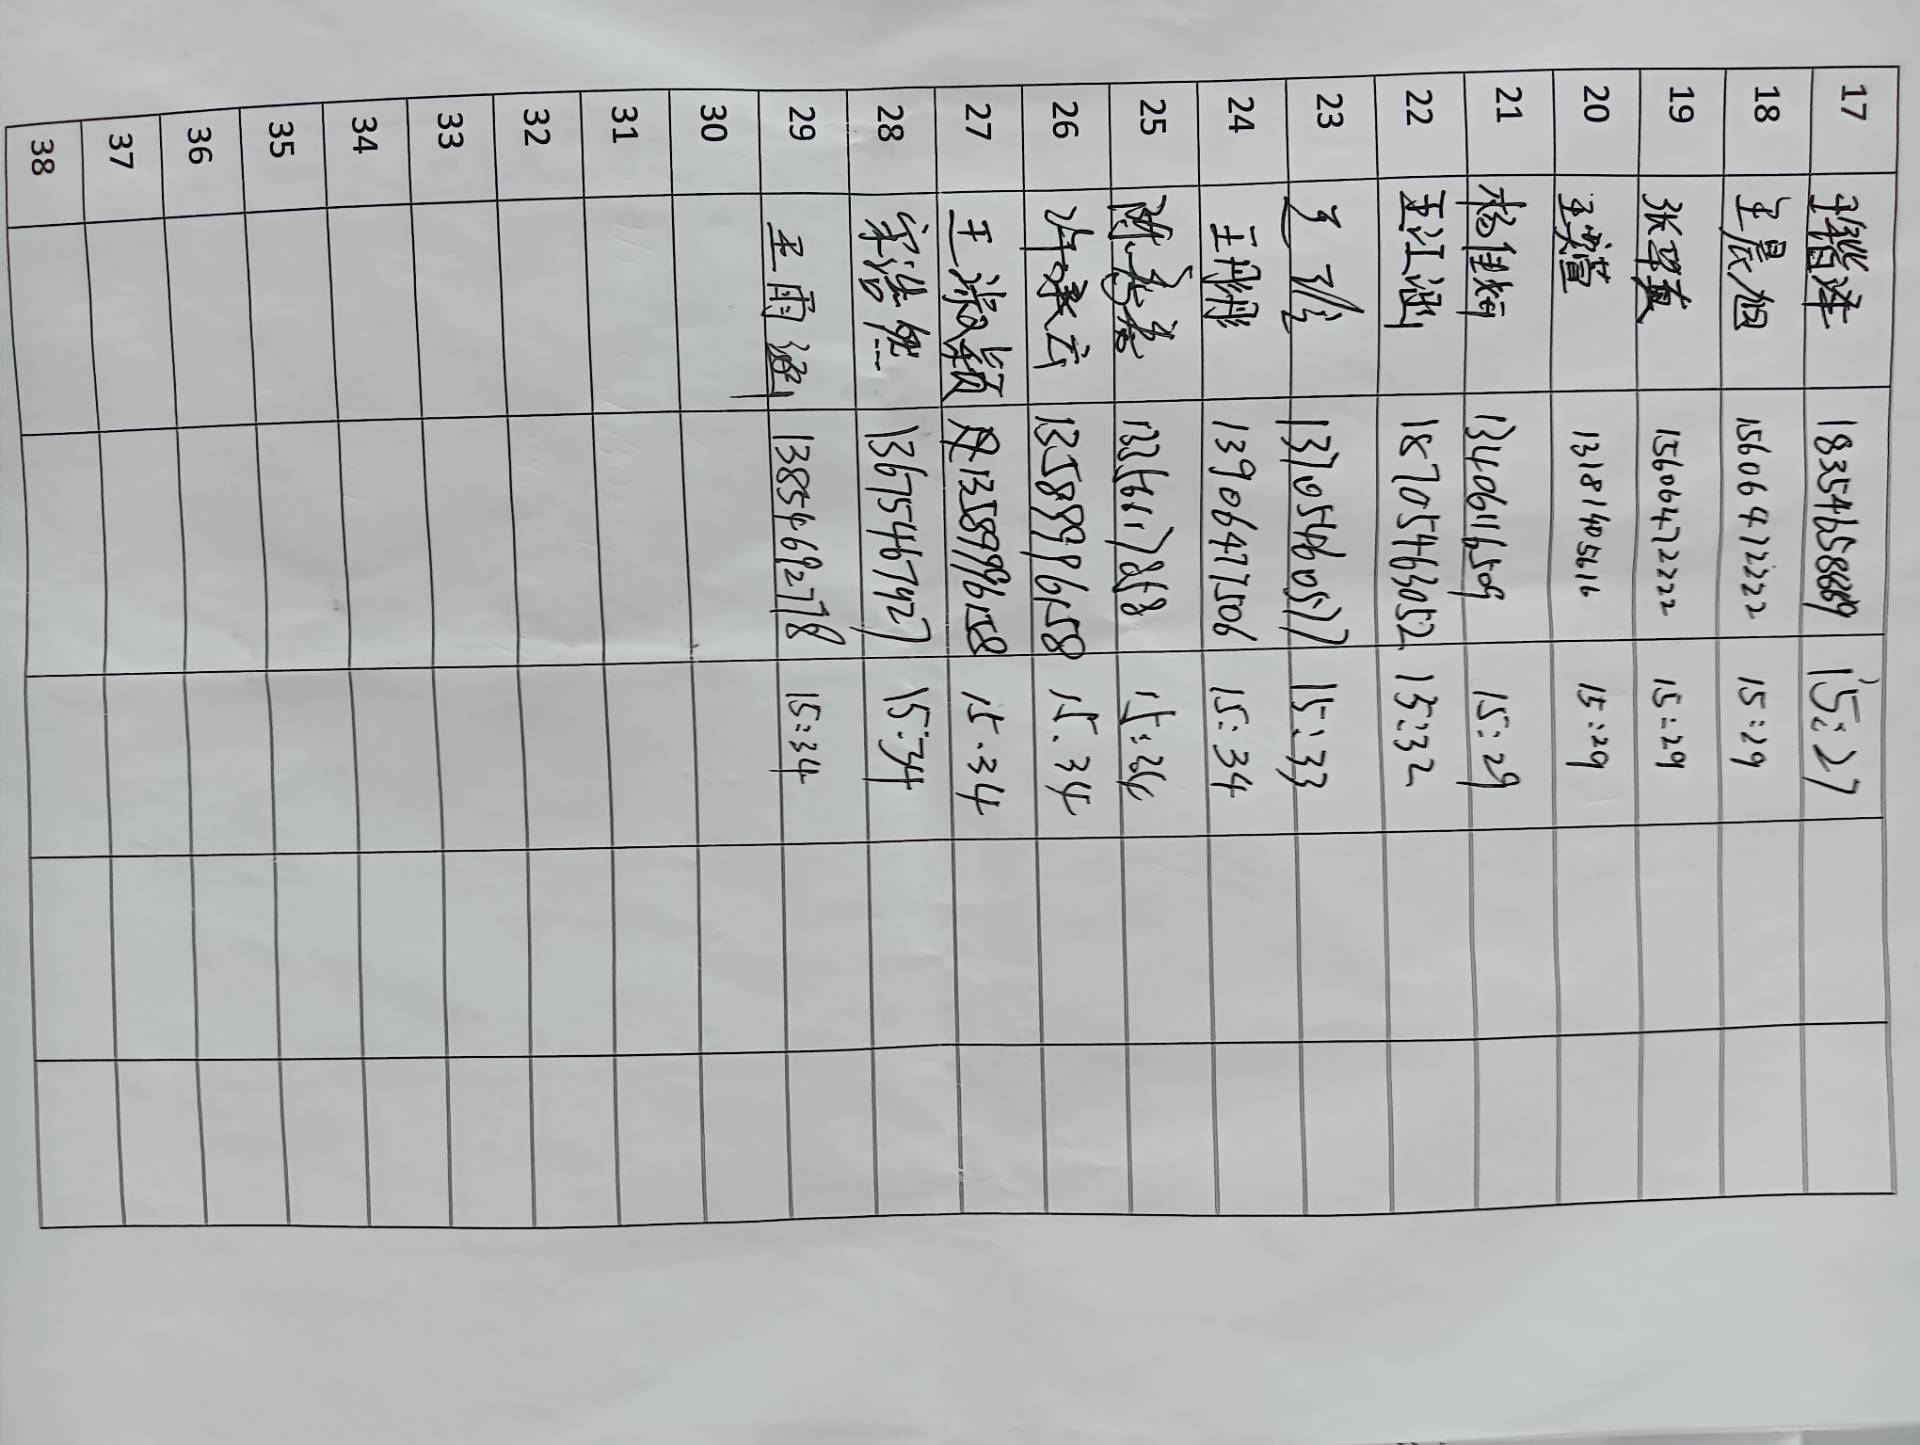 17 15:27
18 王晨旭 15606472222 15:29
19 15606472222 15:29
20 王奕萱 13181405616 15:29
21 杨佳妍 13406111659 15:29
22 王江涵 18705463052 15:32
23 13705460577 15:33
24 王彤彤 13906477506 15:34
25 15:34
26 许承云 13589996158 15.34
27 王淑颖 13589996158 15.34
28 宋浩然 13675467927 15:34
29 王雨涵 13854692778 15:34
30
31
32
33
34
35
36
37
38